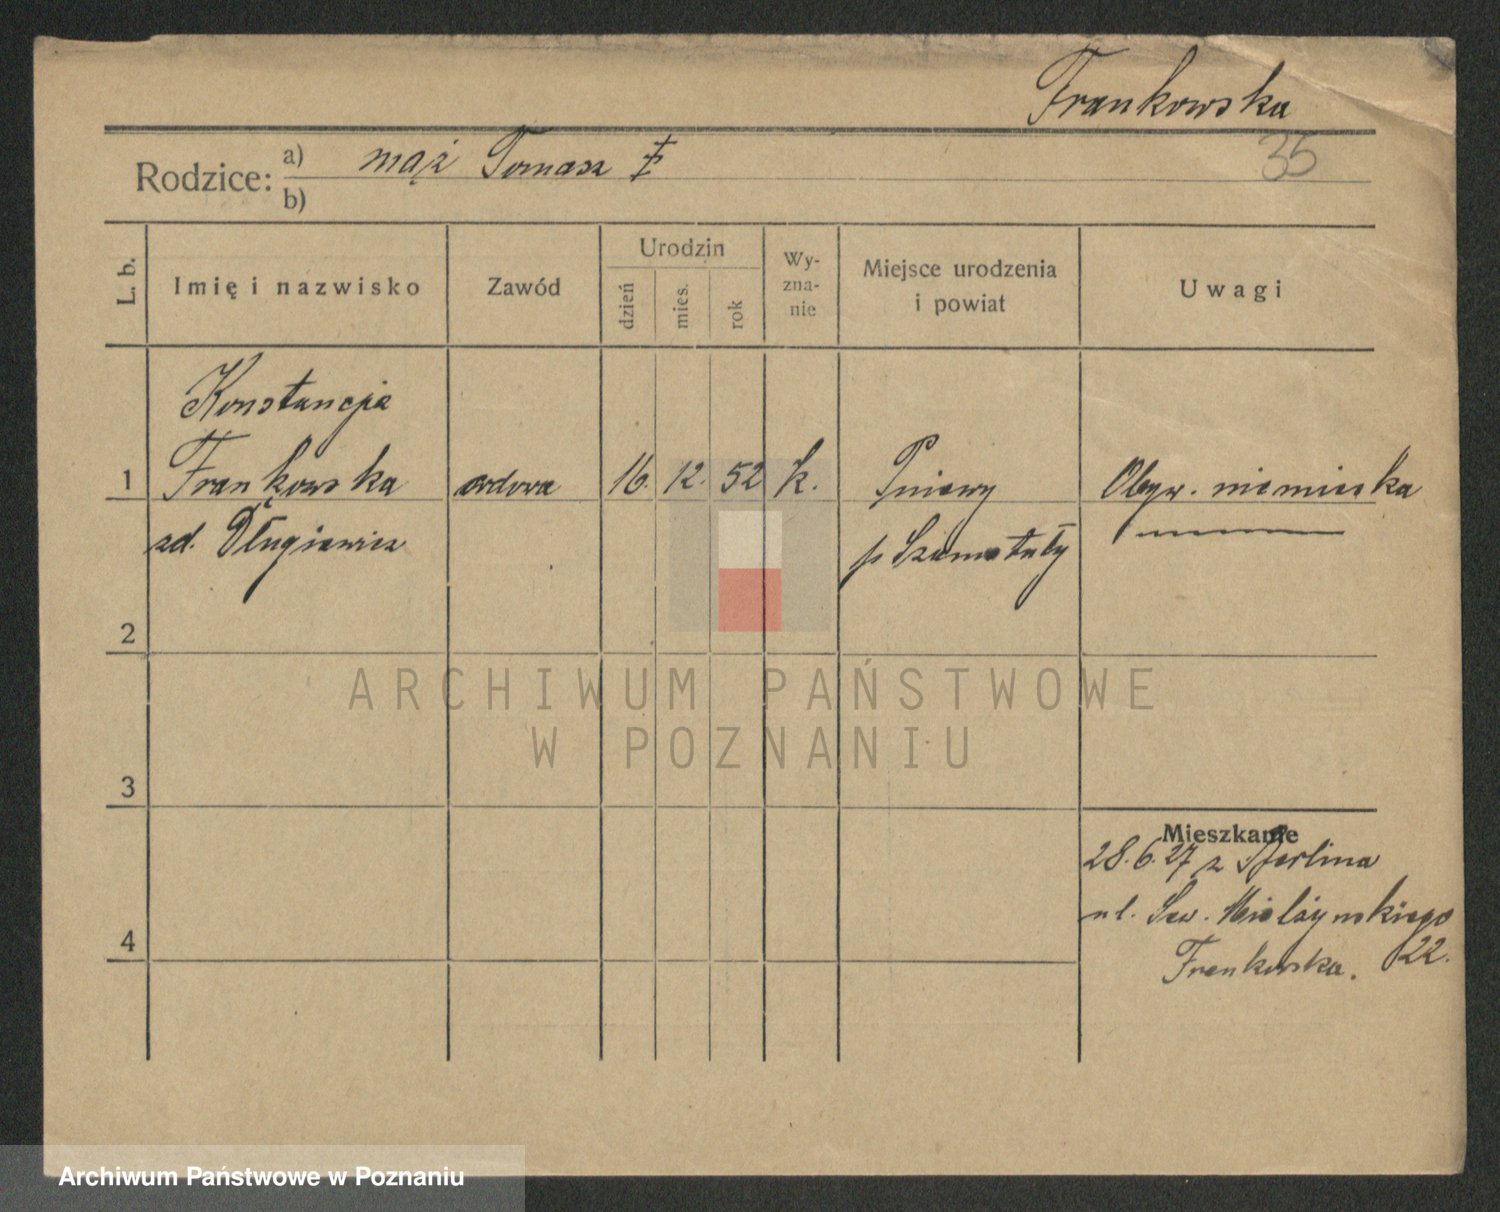 Frankowska
35
Rodzice: a) mąż Tomasz
b)
L. b. Imię i nazwisko Zawód Urodzin dzień mies. rok Wy-zna-nie Miejsce urodzenia i powiat Uwagi
Konstancja
1 Frankowska wdowa 16. 12. 52 k. Pniewy Obyw. niemiecka
zd. Długiewicz p Szamotuły
2
3
Mieszkanie
28.6.27 z Berlina
ul. Sew. Mielżyńskiego
22.
4
Frankowska.
ARCHIWUM PAŃSTWOWE
W POZNANIU
Archiwum Państwowe w Poznaniu